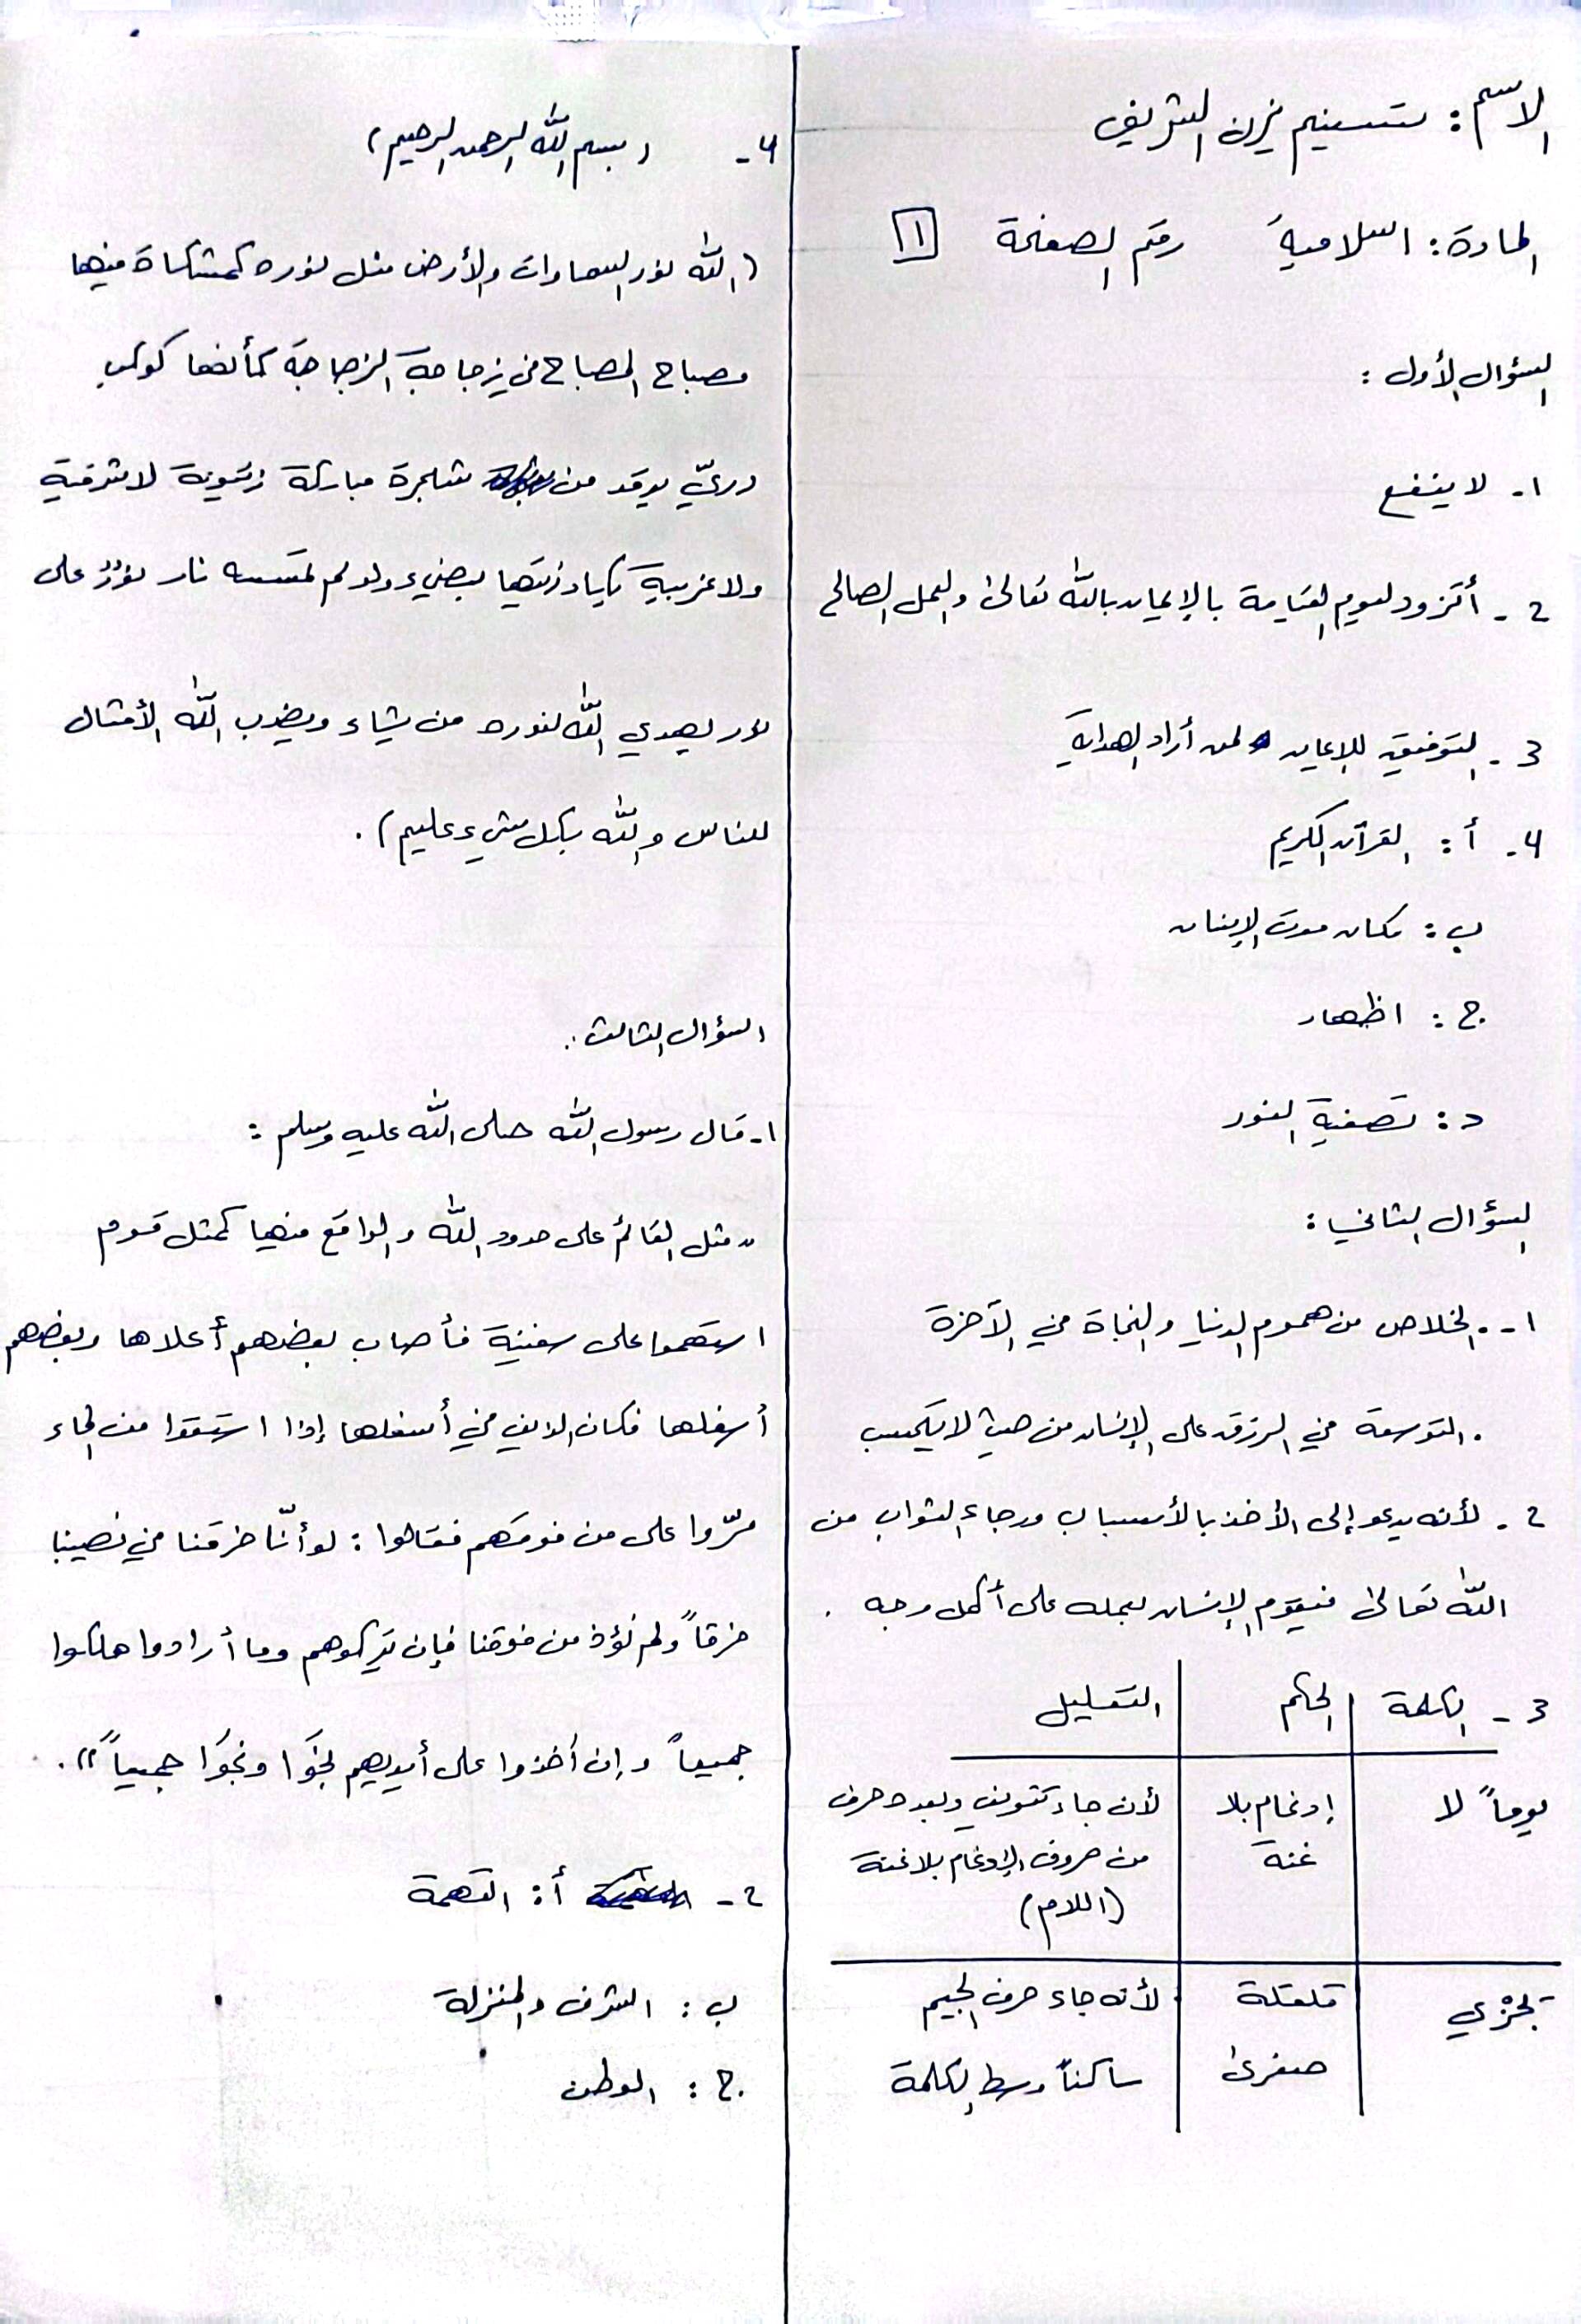 الاسم: تسنيم يزن الشريف
المادة: اسلامية رقم الصفحة 1
السؤال الأول:
1- لا ينفع
2- أتزود ليوم القيامة بالإيمان بالله تعالى والعمل الصالح
3- التوفيق للإيمان لمن أراد الهداية
4- أ: القرآن الكريم
ب: مكان موت الإنسان
ج: اظهار
د: تصفية النور
السؤال الثاني:
1- . الخلاص من هموم الدنيا والنجاة في الآخرة
. التوسعة في الرزق على الإنسان من حيث لا يحتسب
2- لأنه يدعو إلى الأخذ بالأسباب ورجاء الثواب من
الله تعالى فيقوم الإنسان بعمله على أكمل وجه .
3- الكلمة الحكم التعليل
يوماً لا إدغام بلا لأن جاء تنوين وبعده حرف
غنة من حروف الإدغام بلا غنة
(اللام)
تجْزي قلقلة لأنه جاء حرف الجيم
صغرى ساكناً وسط الكلمة
4- (بسم الله الرحمن الرحيم)
(الله نور السماوات والأرض مثل نوره كمشكاة فيها
مصباح المصباح في زجاجة الزجاجة كأنها كوكب
دريّ يوقد من شجرة مباركة زيتونة لا شرقية
ولا غربية يكاد زيتها يضيء ولو لم تمسسه نار نورٌ على
نور يهدي الله لنوره من يشاء ويضرب الله الأمثال
للناس والله بكل شيء عليم).
السؤال الثالث:
1- قال رسول الله صلى الله عليه وسلم:
"مثل القائم على حدود الله والواقع فيها كمثل قوم
استهموا على سفينة فأصاب بعضهم أعلاها وبعضهم
أسفلها فكان الذين في أسفلها إذا استقوا من الماء
مرّوا على من فوقهم فقالوا: لو أنّا خرقنا في نصيبنا
خرقاً ولم نؤذ من فوقنا فإن يتركوهم وما أرادوا هلكوا
جميعاً وإن أخذوا على أيديهم نجَوا ونجَوا جميعاً".
2- أ: التهمة
ب: الشرف والمنزلة
ج: الوطن